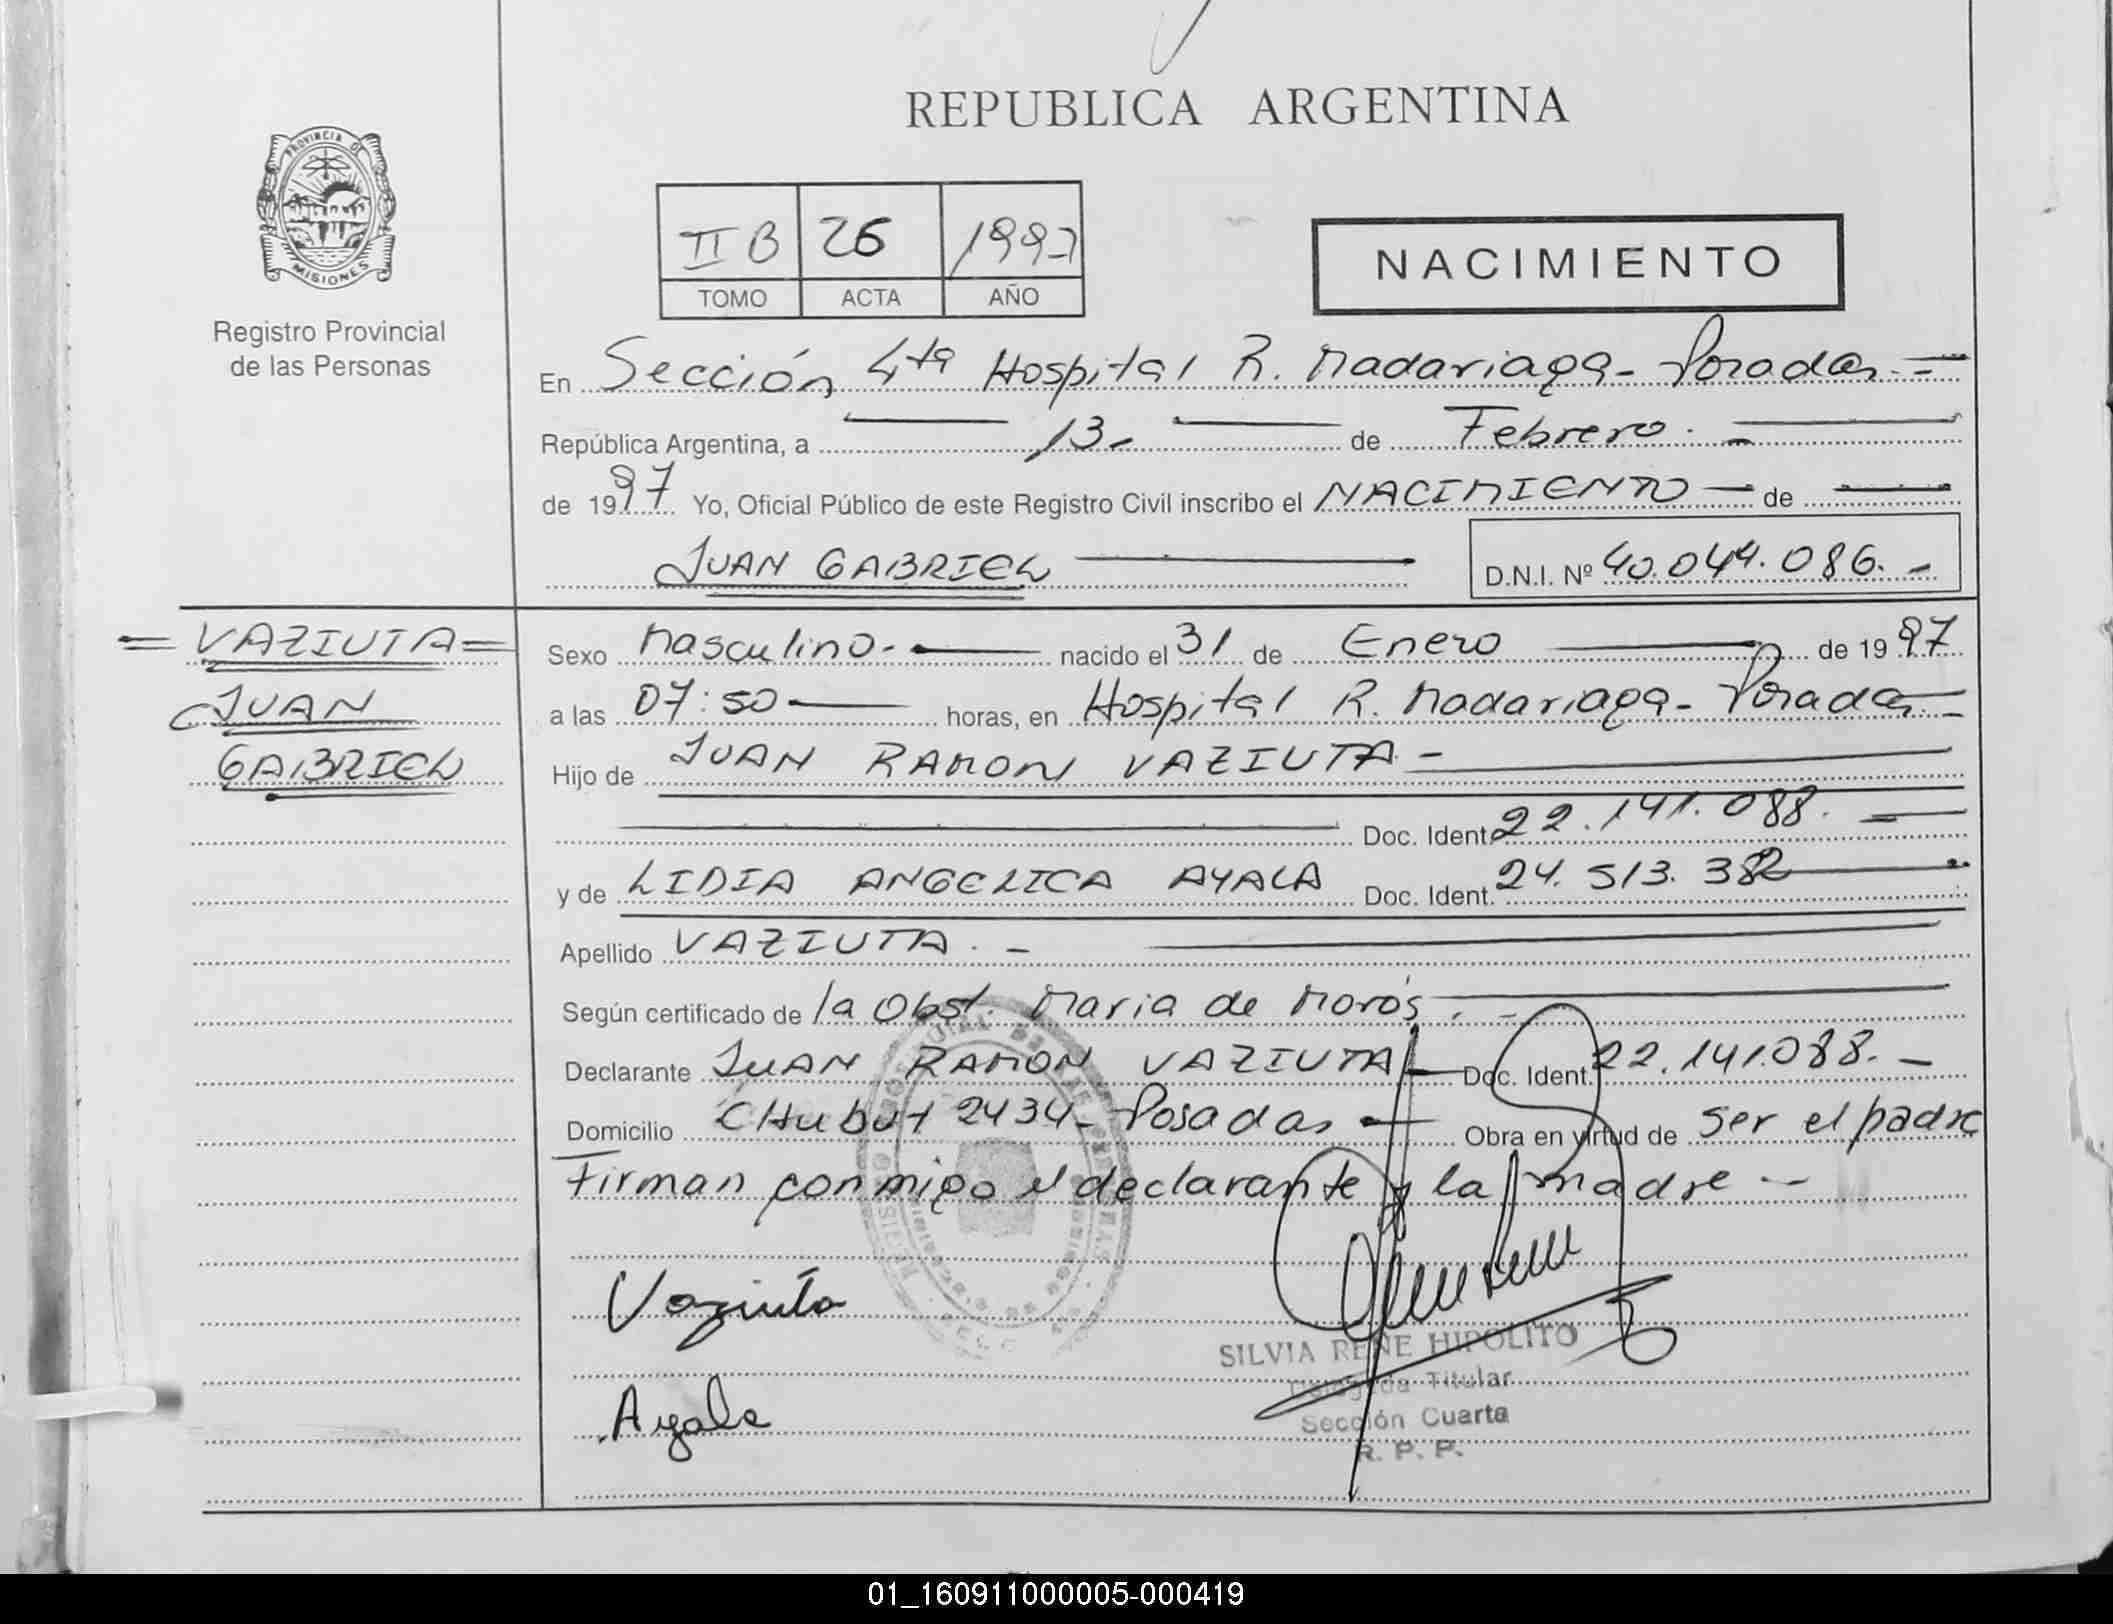 REPUBLICA ARGENTINA
PROVINCIA DE
MISIONES
Registro Provincial
de las Personas
II B 26 1997
TOMO ACTA AÑO
NACIMIENTO
En Sección 4ta Hospital R. Madariaga - Posadas
República Argentina, a 13 de Febrero
de 1997 Yo, Oficial Público de este Registro Civil inscribo el NACIMIENTO de
JUAN GABRIEL D.N.I. Nº 40.044.086.-
VAZIUTA
JUAN
GABRIEL
Sexo Masculino.- nacido el 31 de Enero de 1997
a las 07:50 horas, en Hospital R. Madariaga - Posadas
Hijo de JUAN RAMON VAZIUTA -
Doc. Ident. 22.141.088.
y de LIDIA ANGELICA AYALA Doc. Ident. 24.513.382
Apellido VAZIUTA.-
Según certificado de la Obst. Maria de Morós.
Declarante JUAN RAMON VAZIUTA Doc. Ident. 22.141.088.-
Domicilio CHubut 2434 - Posadas Obra en virtud de ser el padre
Firman conmigo el declarante y la madre --
Vaziuta
SILVIA RENE HIPOLITO
Delegada Titular
Ayala
Sección Cuarta
R. P. P.
01_160911000005-000419